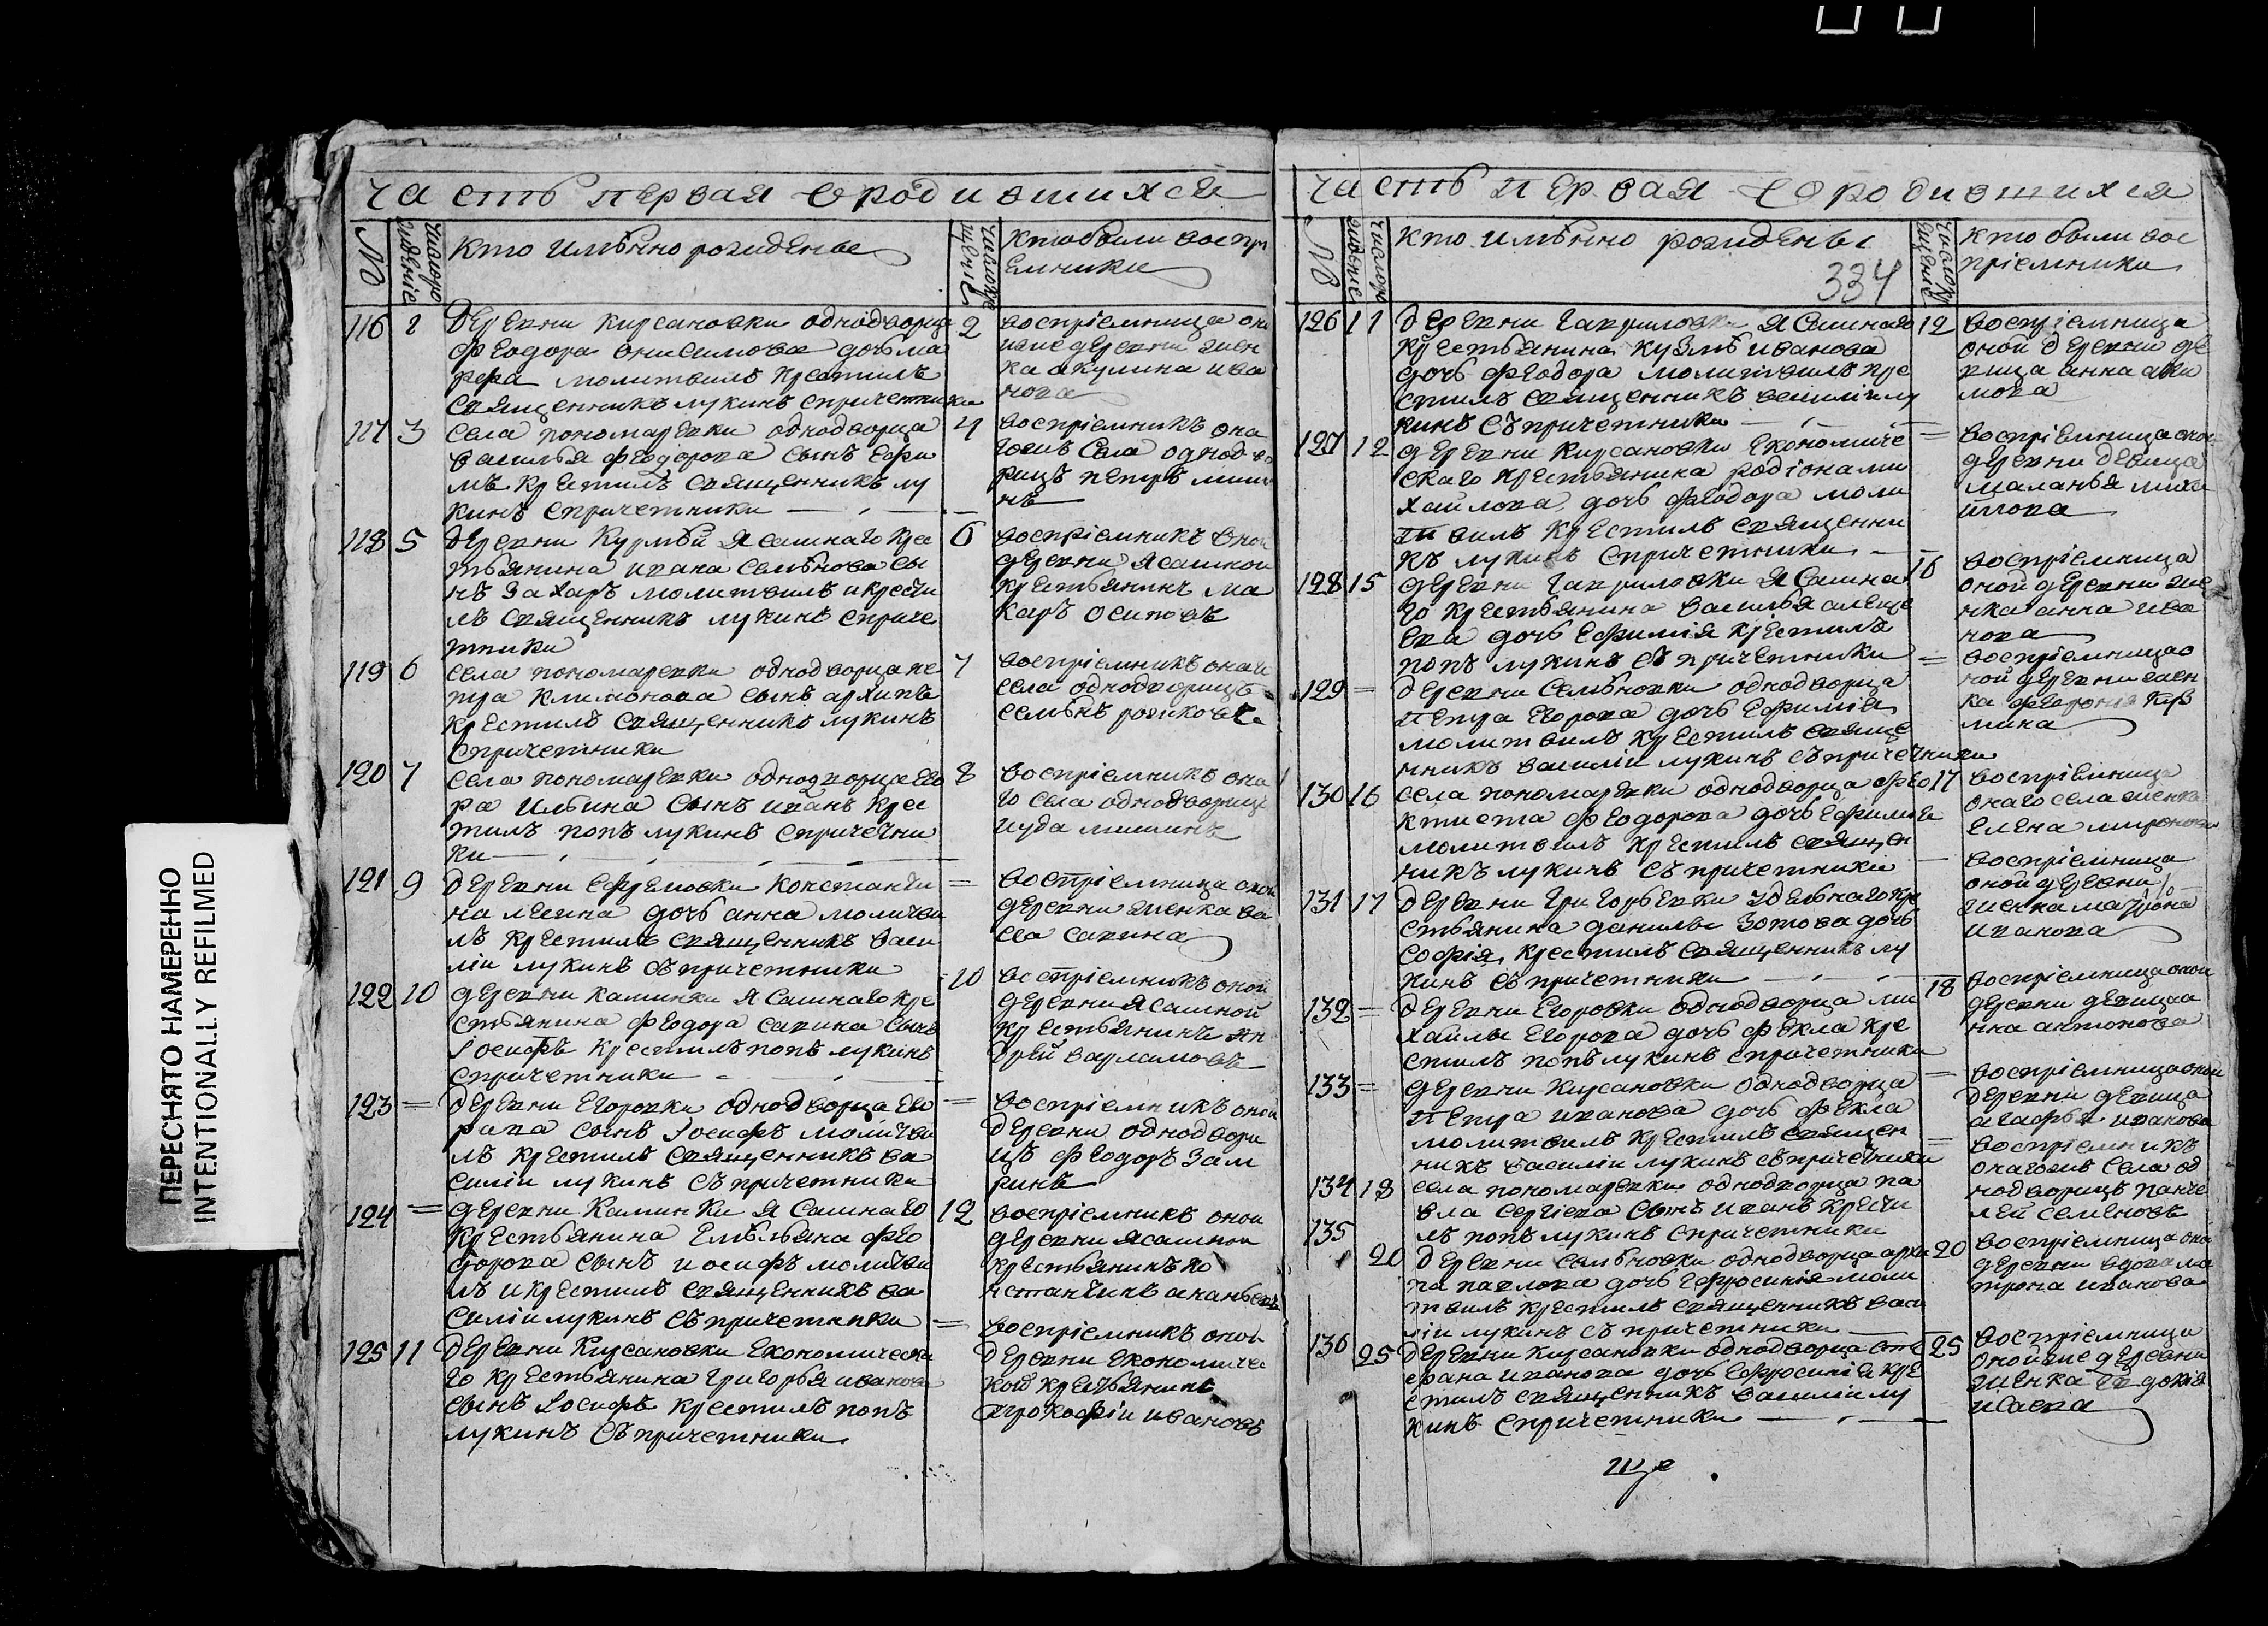 ПЕРЕСНЯТО НАМЕРЕННО
INTENTIONALLY REFILMED
часть первая о родившихся
№
Кто имѣнно рожденъ
Кто были воспрі
емники
116 2 деревни Кирсановки однодворца 2
феодора онисимова дочь ма
рфа молитвилъ крестилъ
священникъ лукинъ спричетники
воспріемница
деревни жен
ка акулина ива
нова
117 3 села пономаревки однодворца 4
василья феодорова сынъ ефи
мъ крестилъ священникъ лу
кинъ спричетники
воспріемникъ она
гожъ села однодво
рецъ петръ миши
нъ
118 5 деревни Курмѣй ясашнаго крес 6
тьянина ивана семѣнова сы
нъ захаръ молитвилъ и крести
лъ священникъ лукинъ сприче
тники
воспріемникъ оной
деревни ясашной
крестьянинъ ма
каръ осиповъ
119 6 села пономаревки однодворца пе 7
тра климонова сынъ архипъ
крестилъ священникъ лукинъ
спричетники
воспріемникъ онаго
села однодворецъ
семѣнъ
120 7 села пономаревки однодворца его 8
ра ильина сынъ иванъ крес
тилъ попъ лукинъ спричетни
ки
воспріемникъ она
го села однодворецъ
иуда мишинъ
121 9 деревни ефремовки константи =
на дочь анна молитви
лъ крестилъ священникъ васи
ліи лукинъ съпричетники
воспріемница оной
деревни женка ва
сса савина
122 10 деревни каминки ясашнаго кре 10
стьянина феодора савина сынъ
Іосифъ крестилъ попъ лукинъ
спричетники
воспріемникъ оной
деревни ясашной
крестьянинъ ан
дрей варламовъ
123 = деревни Егоровки однодворца его =
рава сынъ Іосифъ молитви
лъ крестилъ священникъ ва
силіи лукинъ съпричетники
воспріемникъ оной
деревни однодворе
цъ феодоръ зам
ринъ
124 = деревни Каминки ясашнаго 12
крестьянина Емѣльяна фео
дорова сынъ иосифъ молитви
лъ и крестилъ священникъ ва
силіи лукинъ съпричетники
воспріемникъ оной
деревни ясашной
крестьянинъ ко
нстантинъ ананьевъ
125 11 деревни Кирсановки Економическа =
го крестьянина григорья иванова
сынъ Іосифъ крестилъ попъ
лукинъ съпричетники
воспріемникъ оной
деревни економиче
кой крестьянинъ
прокофіи ивановъ
часть первая о родившихся
№
Кто имѣнно рожденъ
334
Кто были вос
пріемники
126 11 деревни гавриловки ясашнаго 12
крестьянина кузмы иванова
дочь феодора молитвилъ кре
стилъ священникъ василіи лу
кинъ съпричетники
воспріемница
оной деревни де
вица анна аки
мова
127 12 деревни Кирсановки Економиче =
скаго крестьянина родіона ми
хайлова дочь феодора моли
твилъ крестилъ священни
къ лукинъ спричетники
воспріемница оной
деревни девица
маланья миха
илова
128 15 деревни гавриловки ясашна 16
го крестьянина василья алексе
ева дочь ефимія крестилъ
попъ лукинъ съпричетники
воспріемница
оной деревни же
нка анна ива
нова
129 = деревни семѣновки однодворца =
петра егорова дочь ефимія
молитвилъ крестилъ свяще
нникъ василіи лукинъ съпричетники
воспріемница о
ной деревни жен
ка феврония куз
мина
130 16 села пономаревки однодворца фео 17
ктиста феодорова дочь ефимія
молитвилъ крестилъ священ
никъ лукинъ съпричетники
воспріемница
онаго села женка
елена миронова
131 17 деревни григорьевки удельнаго кре —
стьянина данилы зотова дочь
софія крестилъ священникъ лу
кинъ съпричетники
воспріемница
оной деревни
женка матрона
иванова
132 = деревни Егоровки однодворца ми 18
хайлы егорова дочь фекла кре
стилъ попъ лукинъ спричетники
воспріемница оной
деревни девица а
нна антонова
133 = деревни Кирсановки однодворца =
петра иванова дочь фекла
молитвилъ крестилъ священ
никъ василіи лукинъ съпричетники
воспріемница оной
деревни девица
агафья иванова
134 18 села пономаревки однодворца па =
вла сергіева сынъ иванъ крести
лъ попъ лукинъ спричетники
воспріемникъ
онагожъ села од
нодворецъ панте
лей семеновъ
135 20 деревни семѣновки однодворца архи 20
па павлова дочь ефросинія моли
твилъ крестилъ священникъ васи
ліи лукинъ съпричетники
воспріемница оной
деревни вдова ма
трона иванова
136 25 деревни Кирсановки однодворца сте 25
фана иванова дочь ефросинія кре
стилъ священникъ василіи лу
кинъ спричетники
воспріемница
онойже деревни
женка евдокія
исаева